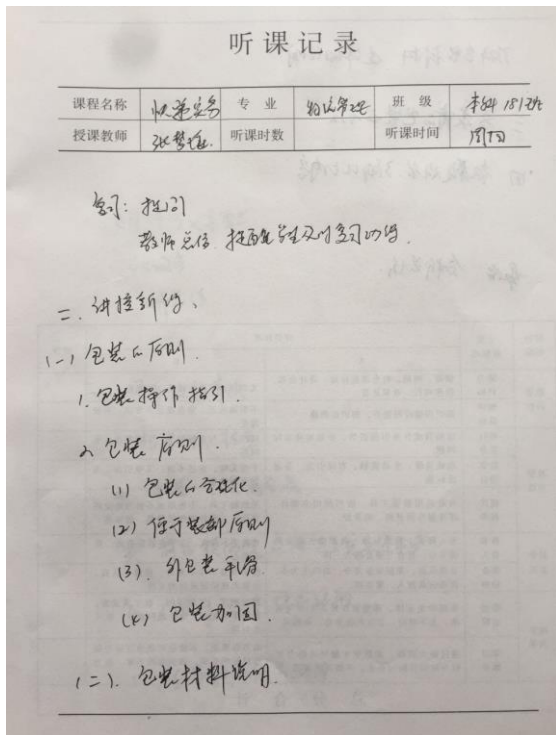 听课记录
课程名称 快递实务 专业 物流管理 班级 本科181班
授课教师 张梦瑶 听课时数 听课时间 周四
复习：提问
教师总结 提醒学生及时复习功课.
二、讲授新课、
(一)包装的原则.
1.包装操作指引.
2.包装原则.
(1)包装的合理化.
(2)便于装卸原则
(3).外包装平滑.
(4)包装加固.
(二).包装材料说明.